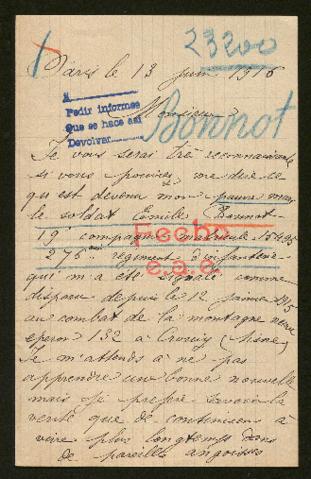 23200
Paris le 13 juin 1916
A
Pedir informes
Que se hace así
Devolver
Monsieur
Bonnot
Je vous serai trè reconnaissante
si vous pouviez me dire ce
qui est devenu mon pauvre mari
le soldat Camille Bonnot
19e compagnie matricule
Fecho
276me regiment d'infanterie
e.a.e.
qui m'a été signalé comme
disparu depuis le 12 janvier 1915
au combat de la montagne neuve
eperon 132 à Crouy (Aisne)
Je m'attends a ne pas
apprendre une bonne nouvelle
mais je prefere savoir la
verite que de continuer à
vivre plus longtemps dans
de pareille angoisses